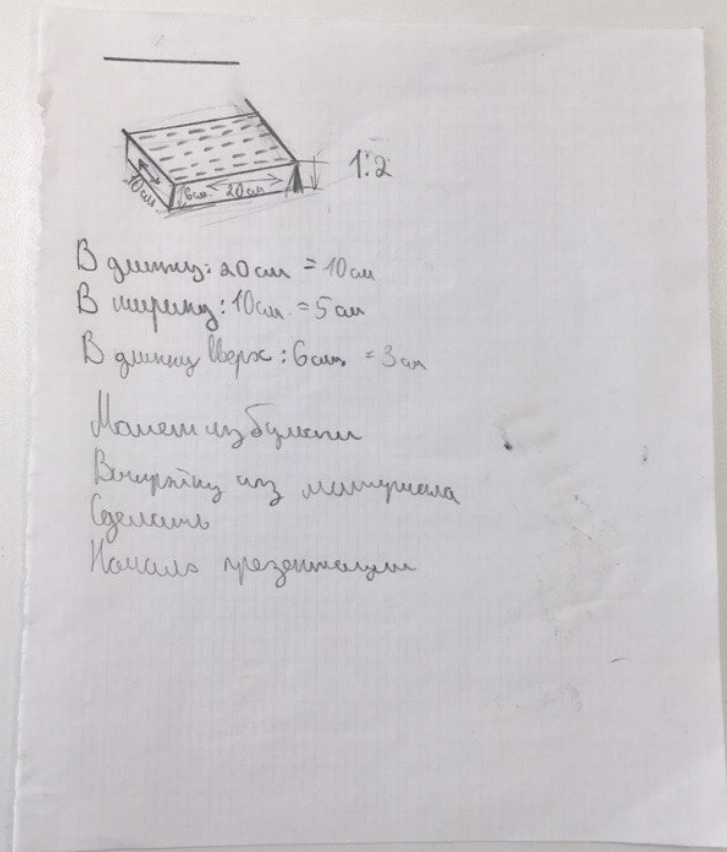 10см.
6см.
20см
1:2
В длинну: 20см = 10см
В ширину: 10см. = 5см
В длинну вверх: 6см. = 3см
Макет из бумаги
из материала
Сделать
Начать презентации